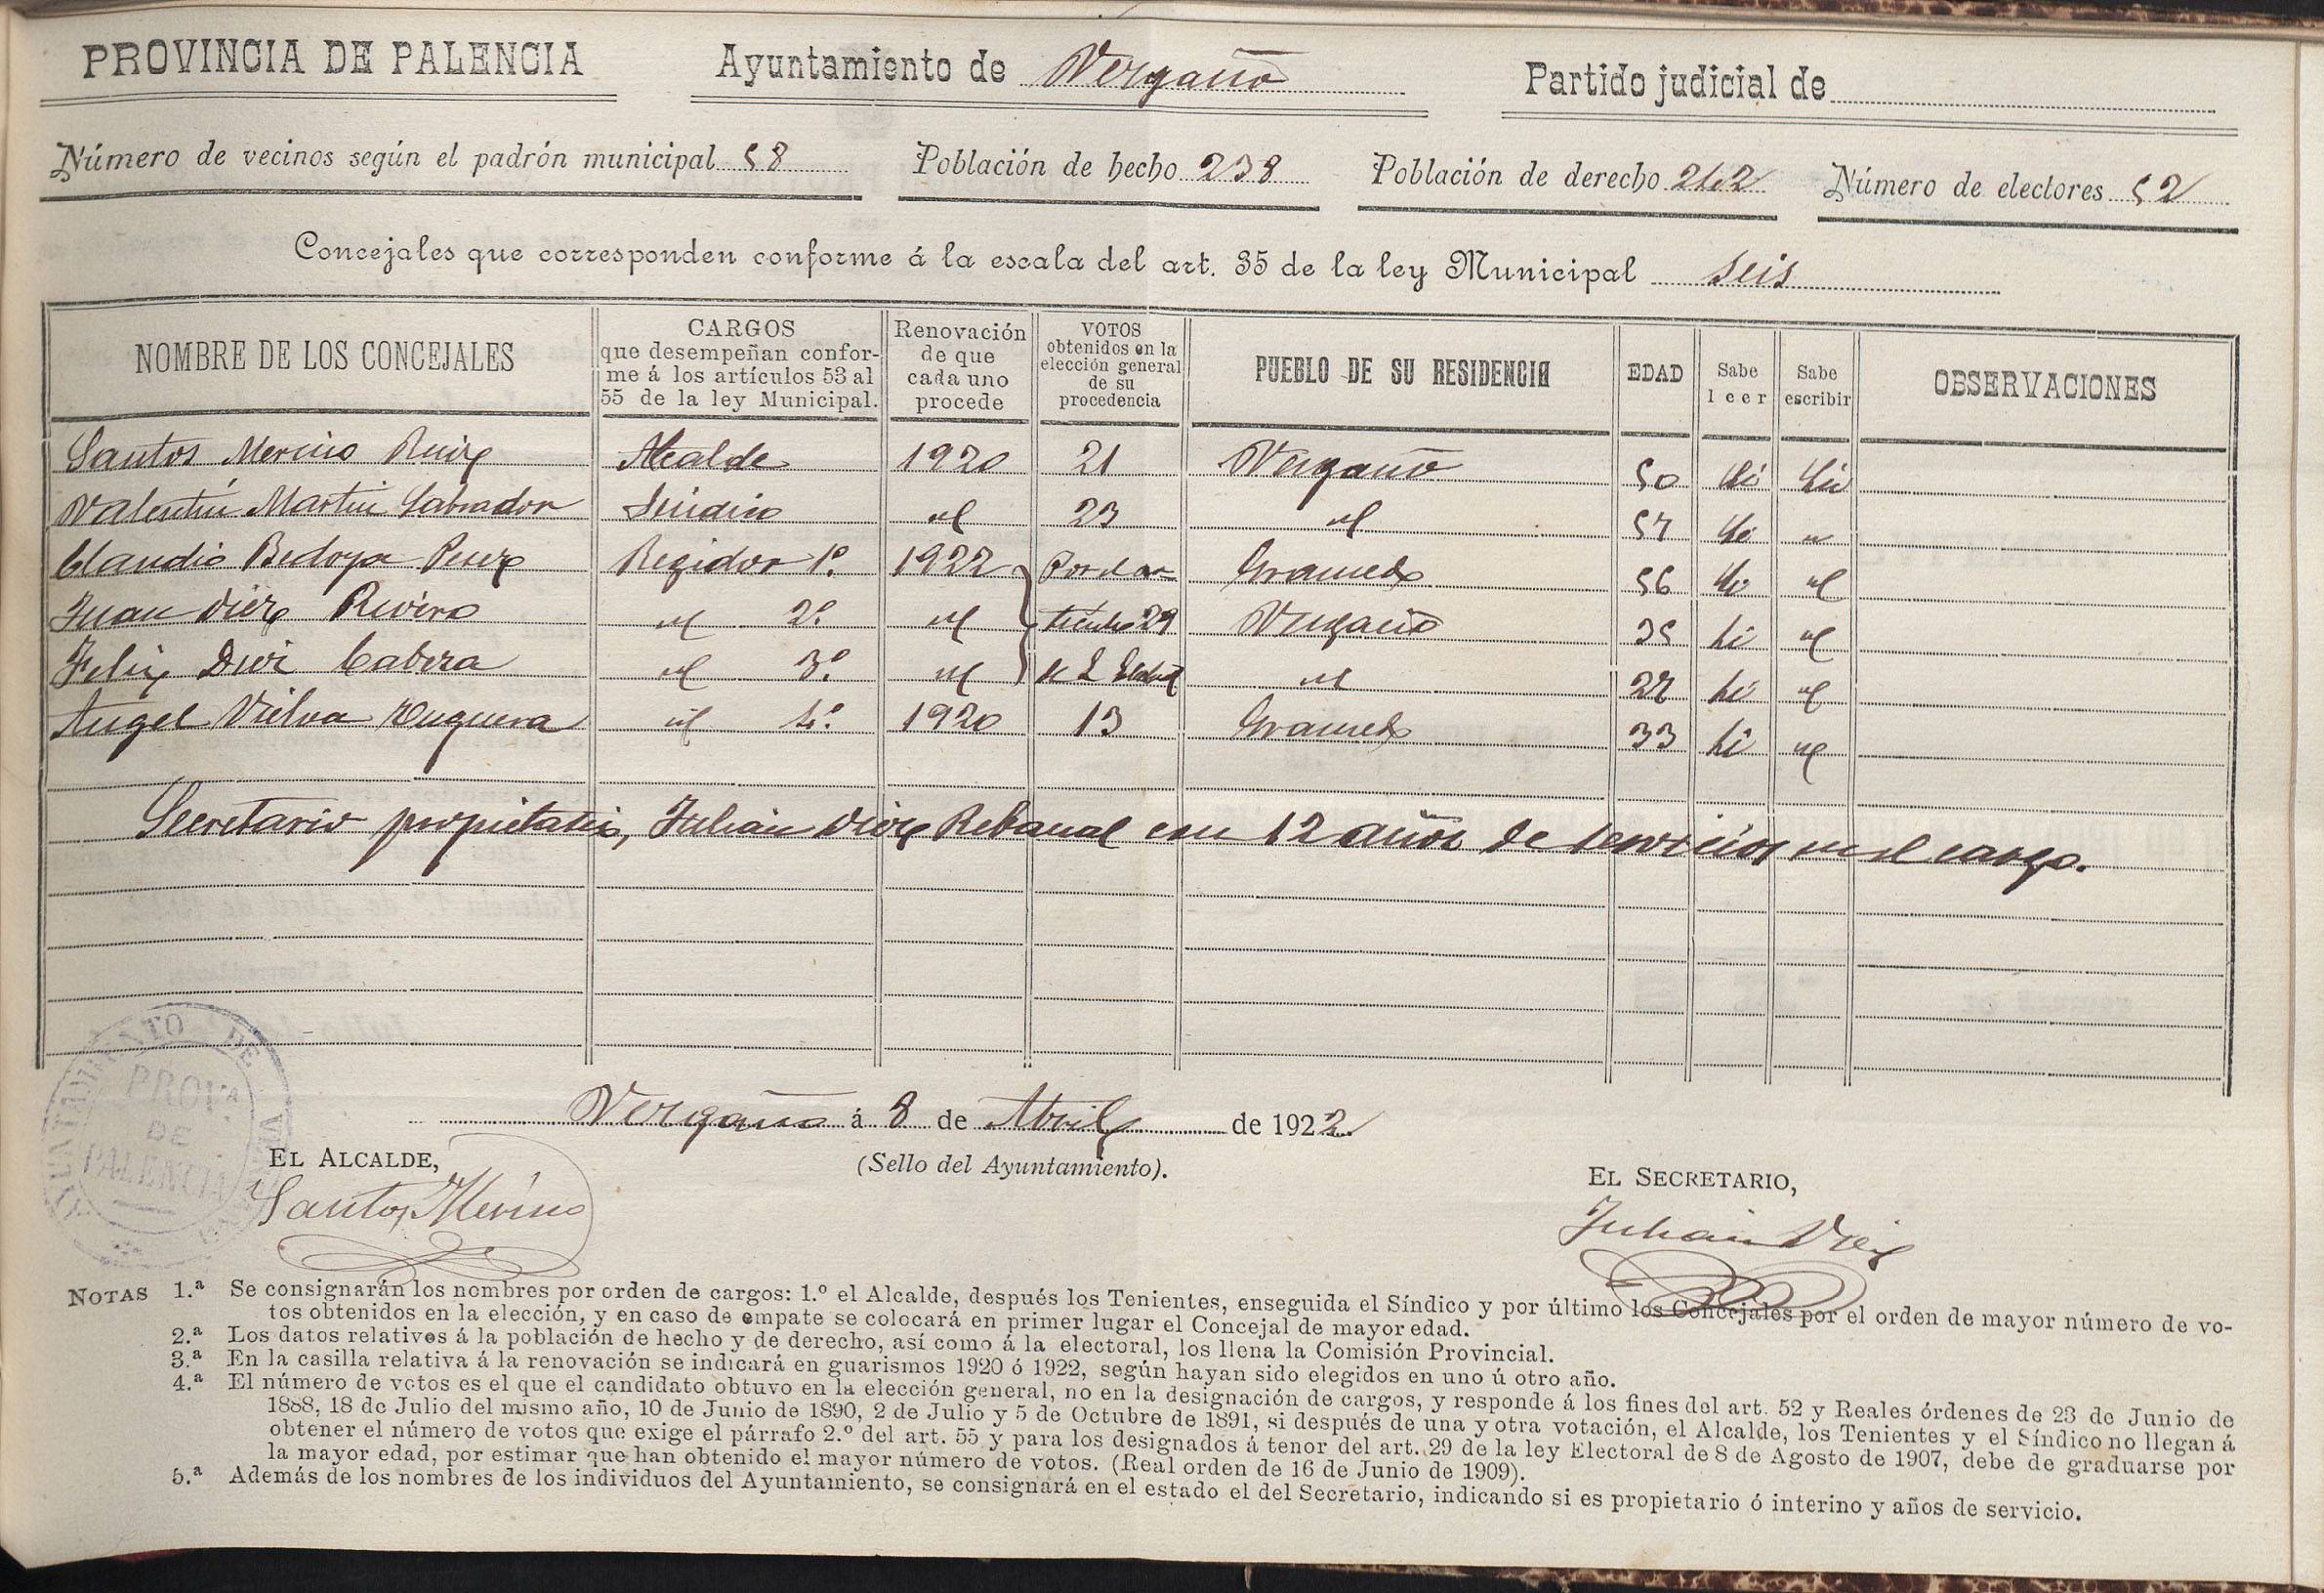 PROVINCIA DE PALENCIA Ayuntamiento de Vergaño Partido judicial de
Número de vecinos según el padrón municipal 58 Población de hecho 238 Población de derecho 242 Número de electores 52
Concejales que corresponden conforme á la escala del art. 35 de la ley Municipal seis
NOMBRE DE LOS CONCEJALES
CARGOS
que desempeñan confor-
me á los artículos 53 al
55 de la ley Municipal.
Renovación
de que
cada uno
procede
VOTOS
obtenidos en la
elección general
de su
procedencia
PUEBLO DE SU RESIDENCIA
EDAD
Sabe
leer
Sabe
escribir
OBSERVACIONES
Santos Merino Ruiz Alcalde 1920 21 Vergaño 50 Si Si
Valentín Martin Labrador Sindico id 23 id 57 Si id
Claudio Bedoya Perez Regidor 1º. 1922 Por el ar- Gramedo 56 Si id
Juan Diez Rivero id 2º. id tículo 29 Vergaño 35 Si id
Felix Diez Cabeza id 3º. id de L. Electoral id 27 Si id
Angel Vielva id 4º. 1920 13 Gramedo 33 Si id
Secretario propietario, Julián Diez Rebanal con 12 años de servicios en el cargo.
Vergaño á 8 de Abril de 1922
(Sello del Ayuntamiento).
AYUNTAMIENTO DE
PROVA.
DE
PALENCIA
EL ALCALDE,
Santos Merino
EL SECRETARIO,
Julian Diez
NOTAS 1.ª Se consignarán los nombres por orden de cargos: 1.º el Alcalde, después los Tenientes, enseguida el Síndico y por último los Concejales por el orden de mayor número de vo-
tos obtenidos en la elección, y en caso de empate se colocará en primer lugar el Concejal de mayor edad.
2.ª Los datos relativos á la población de hecho y de derecho, así como á la electoral, los llena la Comisión Provincial.
3.ª En la casilla relativa á la renovación se indicará en guarismos 1920 ó 1922, según hayan sido elegidos en uno ú otro año.
4.ª El número de votos es el que el candidato obtuvo en la elección general, no en la designación de cargos, y responde á los fines del art. 52 y Reales órdenes de 23 de Junio de
1888, 18 de Julio del mismo año, 10 de Junio de 1890, 2 de Julio y 5 de Octubre de 1891, si después de una y otra votación, el Alcalde, los Tenientes y el Síndico no llegan á
obtener el número de votos que exige el párrafo 2.º del art. 55 y para los designados á tenor del art. 29 de la ley Electoral de 8 de Agosto de 1907, debe de graduarse por
la mayor edad, por estimar que han obtenido el mayor número de votos. (Real orden de 16 de Junio de 1909).
5.ª Además de los nombres de los individuos del Ayuntamiento, se consignará en el estado el del Secretario, indicando si es propietario ó interino y años de servicio.